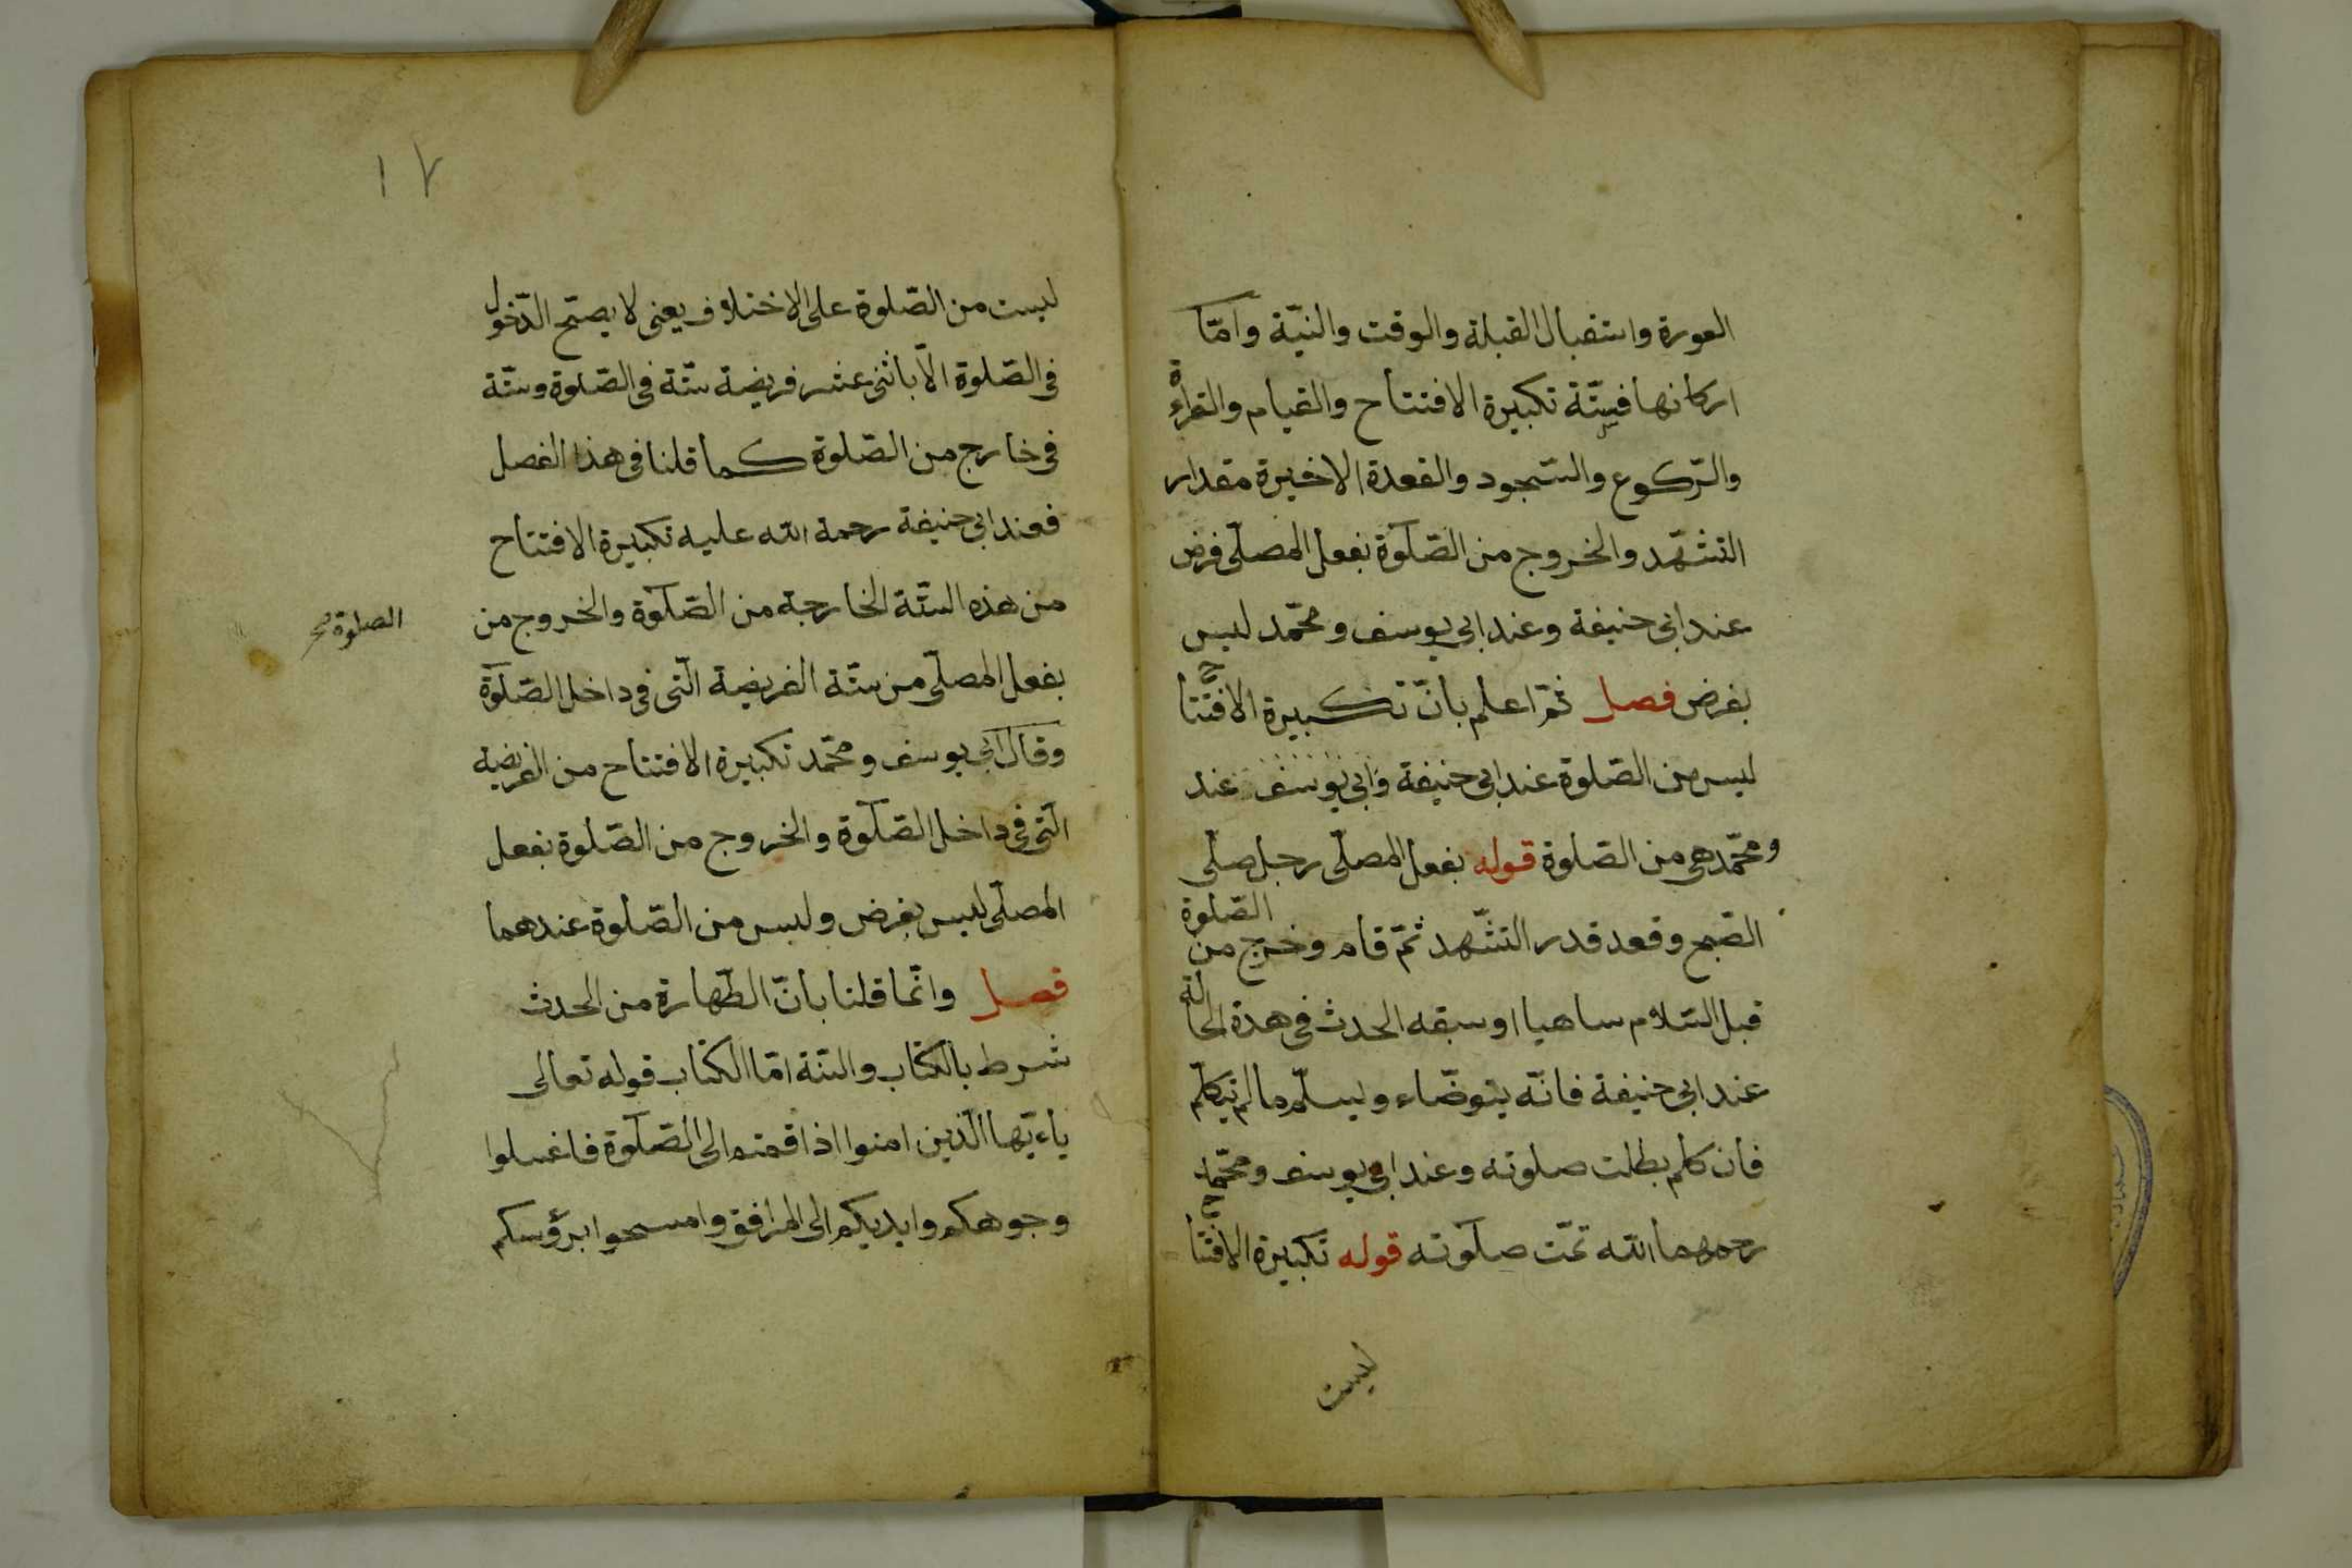 العورة واستقبال القبلة والوقت والنيّة وامّا
اركانها فستّة تكبيرة الافتتاح والقيام والقراءة
والرّكوع والسّجود والقعدة الاخيرة مقدار
التشهّد والخروج من الصّلوة بفعل المصلّى فرض
عند ابى حنيفة وعند ابى يوسف ومحمّد ليس
بفرض فصل ثمّ اعلم بانّ تكبيرة الافتتاح
ليس من الصّلوة عند ابى حنيفة وابى يوسف عند
ومحمّد هى من الصّلوة قوله بفعل المصلّى رجل صلّى
الصّبح وقعد قدر التشّهد ثمّ قام وخرج من الصّلوة
قبل السّلام ساهيا او سبقه الحدث فى هدة الحالة
عند ابى حنيفة فانّه يتوضّاء ويسلّم ما لم يتكلّم
فان كلم بطلت صلوته وعند ابى يوسف ومحمّد
رحمهما الله تمّت صلوته قوله تكبيرة الافتتاح
ليست
١٧
ليست من الصّلوة على الاختلاف يعنى لا يصحّ الدّخول
فى الصّلوة الّا باثنى عشر فريضة ستّة فى الصّلوة وستّة
فى خارج من الصّلوة كما قلنا فى هذا الفصل
فعند ابى حنيفة رحمة الله عليه تكبيرة الافتتاح
من هذه الستّة الخارجة من الصّلوة والخروج من
الصلوة صح
بفعل المصلّى من ستّة الفريضة الّتى فى داخل الصّلوة
وقال ابى يوسف ومحمّد تكبيرة الافتتاح من الفريضة
الّتى فى داخل الصّلوة والخروج من الصّلوة بفعل
المصلّى ليس بفرض وليس من الصّلوة عندهما
فصل وانّما قلنا بانّ الطّهارة من الحدث
شرط بالكتاب والسنّة امّا الكتاب قوله تعالى
ياءيّها الّذين امنوا اذا قمتم الى الصّلوة فاغسلوا
وجوهكم وايديكم الى المرافق وامسحوا برؤسكم